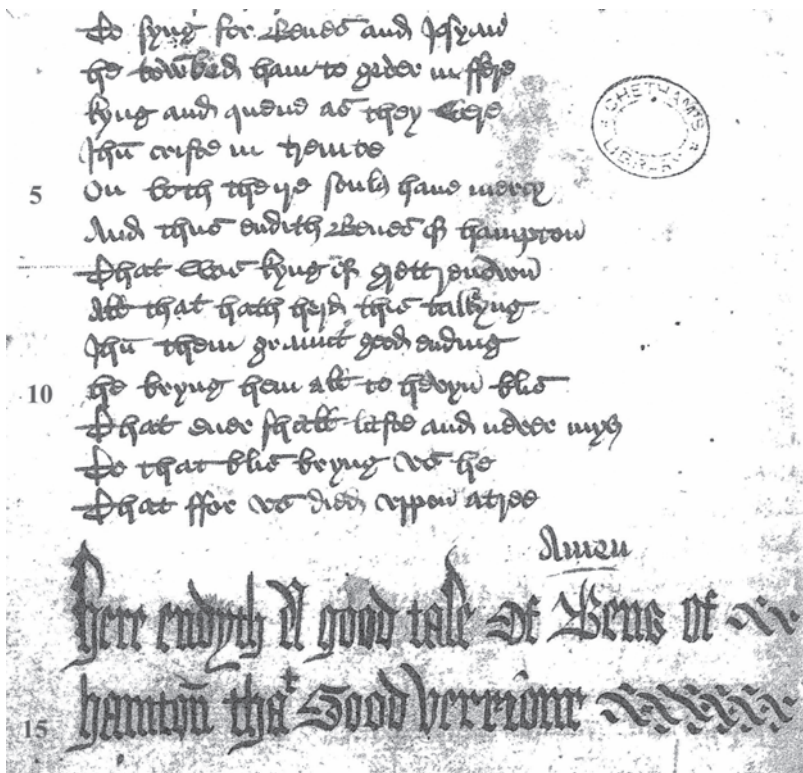 To syng for Beues and Josyan
he towmbed ham to geder in ffere
kyng and quene as they were
CHETHAM'S LIBRARY
Jhū criste in trenite
5 On both the ire soulꝭ haue mercy
And thus endith Beues of hampton
That was kyng of
All that hath herd this talkyng
Jhū them graunt good ending
10 he bryng hem all to hevyn blis
That euer shall laste and never mys
To that blis bryng vs he
That ffor vs died vppon atree
Amen
here endyth A good tale Of Beus Of
15 hamton̄ thaᵗ Good verriour